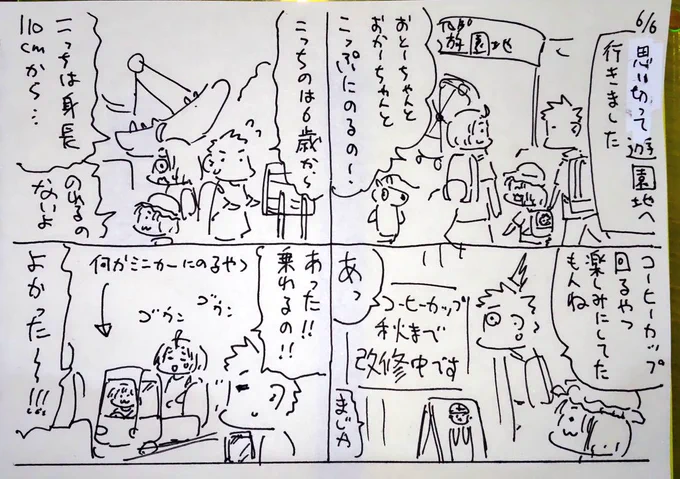 6/6
思い切って遊園地へ
行きました
遊園地
おとーちゃんと
おかーちゃんと
こっぷにのるの〜、
こっちのは6歳から〜
こっちは身長
110cmから…
のれるの
ないよ
コーヒーカップ
回るやつ
楽しみにしてた
もんね
あっ
コーヒーカップ
秋まで
改修中です
まじか
あった!!
乗れるの!!
何かミニカーにのるやつ
ゴウン
ゴウン
よかった〜!!!